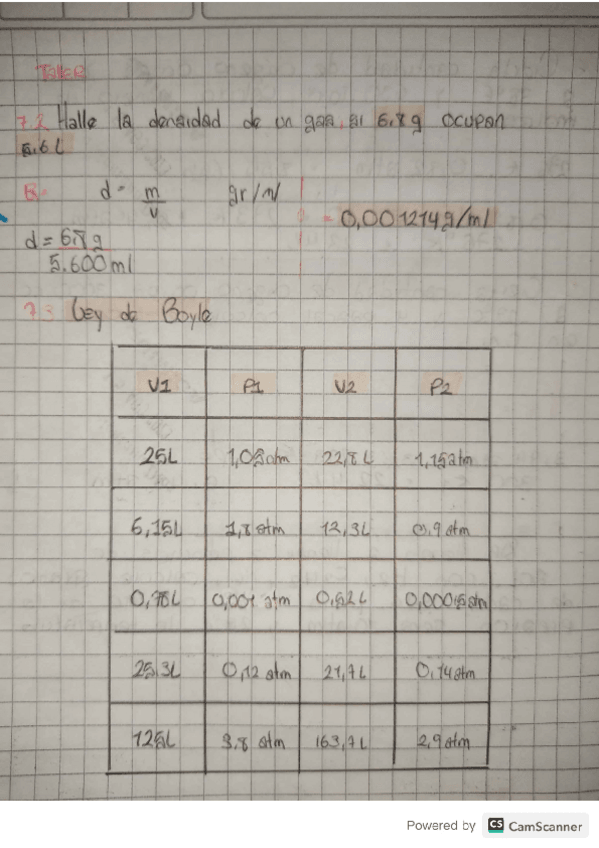 Taller
7.2 Halle la densidad de un gas, si 6,8 g ocupan
5.6 L
R= d= m/v gr/ml = 0,001214 g/ml
d = 6.8 g
5.600 ml
7.3 Ley de Boyle
V1 P1 V2 P2
25L 1,05 atm 22,8 L 1,15 atm
6,15L 1,8 atm 12,3L 0,9 atm
0,001 atm 0,52 L
25.3L 0,12 atm 21,7L 0,14 atm
125L 3,8 atm 163,7L 2,9 atm
Powered by CS CamScanner